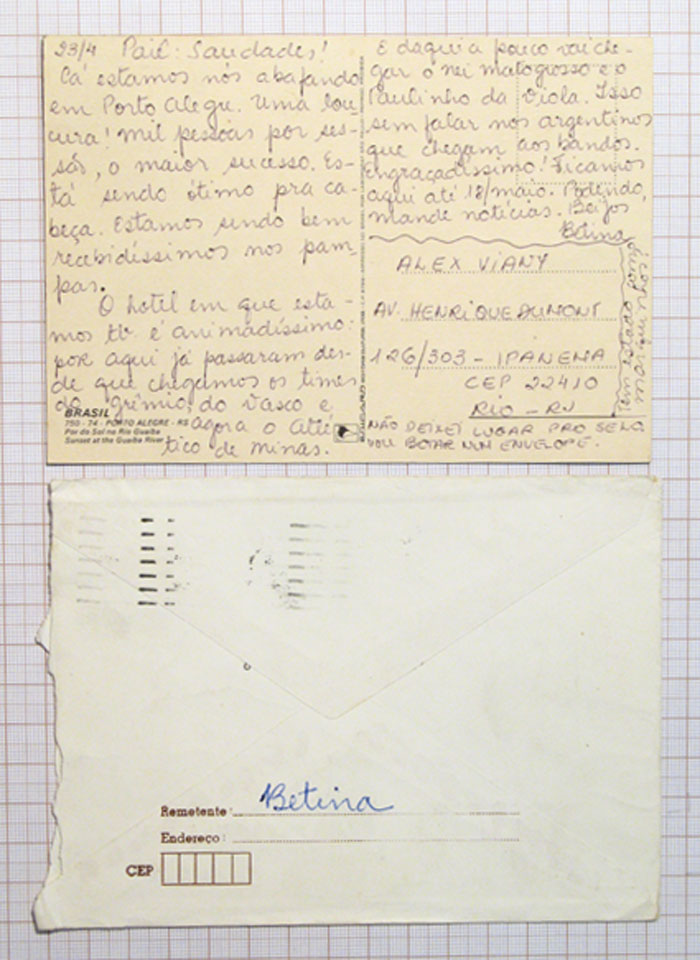 23/4 Pai: Saudades!
Cá estamos nós abafando
em Porto Alegre. Uma lou-
cura! mil pessoas por ses-
são, o maior sucesso. Es-
tá sendo ótimo pra ca-
beça. Estamos sendo bem
recebidíssimos nos pam-
pas.
O hotel em que esta-
mos tb é animadíssimo:
por aqui já passaram des-
de que chegamos os times
do Grêmio, do Vasco e,
agora o Atlé-
tico de Minas.
BRASIL
750 - 74 - PORTO ALEGRE - RS
Por do Sol no Rio Guaíba
Sunset at the Guaíba River
E daqui a pouco vai che-
gar o nei matogrosso e o
Paulinho da Viola. Isso
sem falar nos argentinos
que chegam aos bandos.
Engraçadíssimo! Ficamos
aqui até 18/maio. Podendo,
mande notícias. Beijos
Betina
ALEX VIANY
AV. HENRIQUE DUMONT
126/303 - IPANEMA
CEP 22410
RIO - RJ
NÃO DEIXEI LUGAR PRO SELO,
VOU BOTAR NUM ENVELOPE.
Betina
Remetente:
Endereço:
CEP